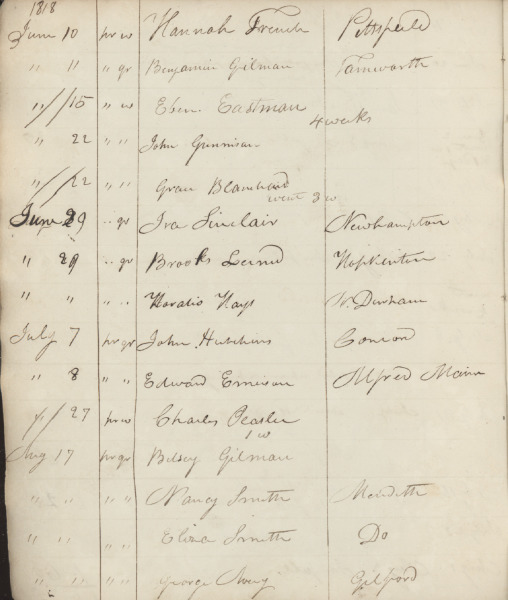 1818
June 10 pr w Hannah French Pittsfield
" 11 " gr Benjamin Gilman Tamworth
" 15 " w Eben Eastman
4 weeks
" 22 " " John Gunnison
" 22 " " Blanchard
went 3 w
June 29 " gr Ira Sinclair Newhampton
" 29 " gr Brooks Hopkinton
" " " " Horatio Hoyt N. Durham
July 7 pr gr John Hutchins Concord
" 8 " " Edward Emerson Alfred Maine
" 27 pr w Charles Peaslee
1 w
Aug 17 pr gr Betsey Gilman
" " " " Nancy Smith Meredith
" " " " Eliza Smith Do
" " " " George Gilford